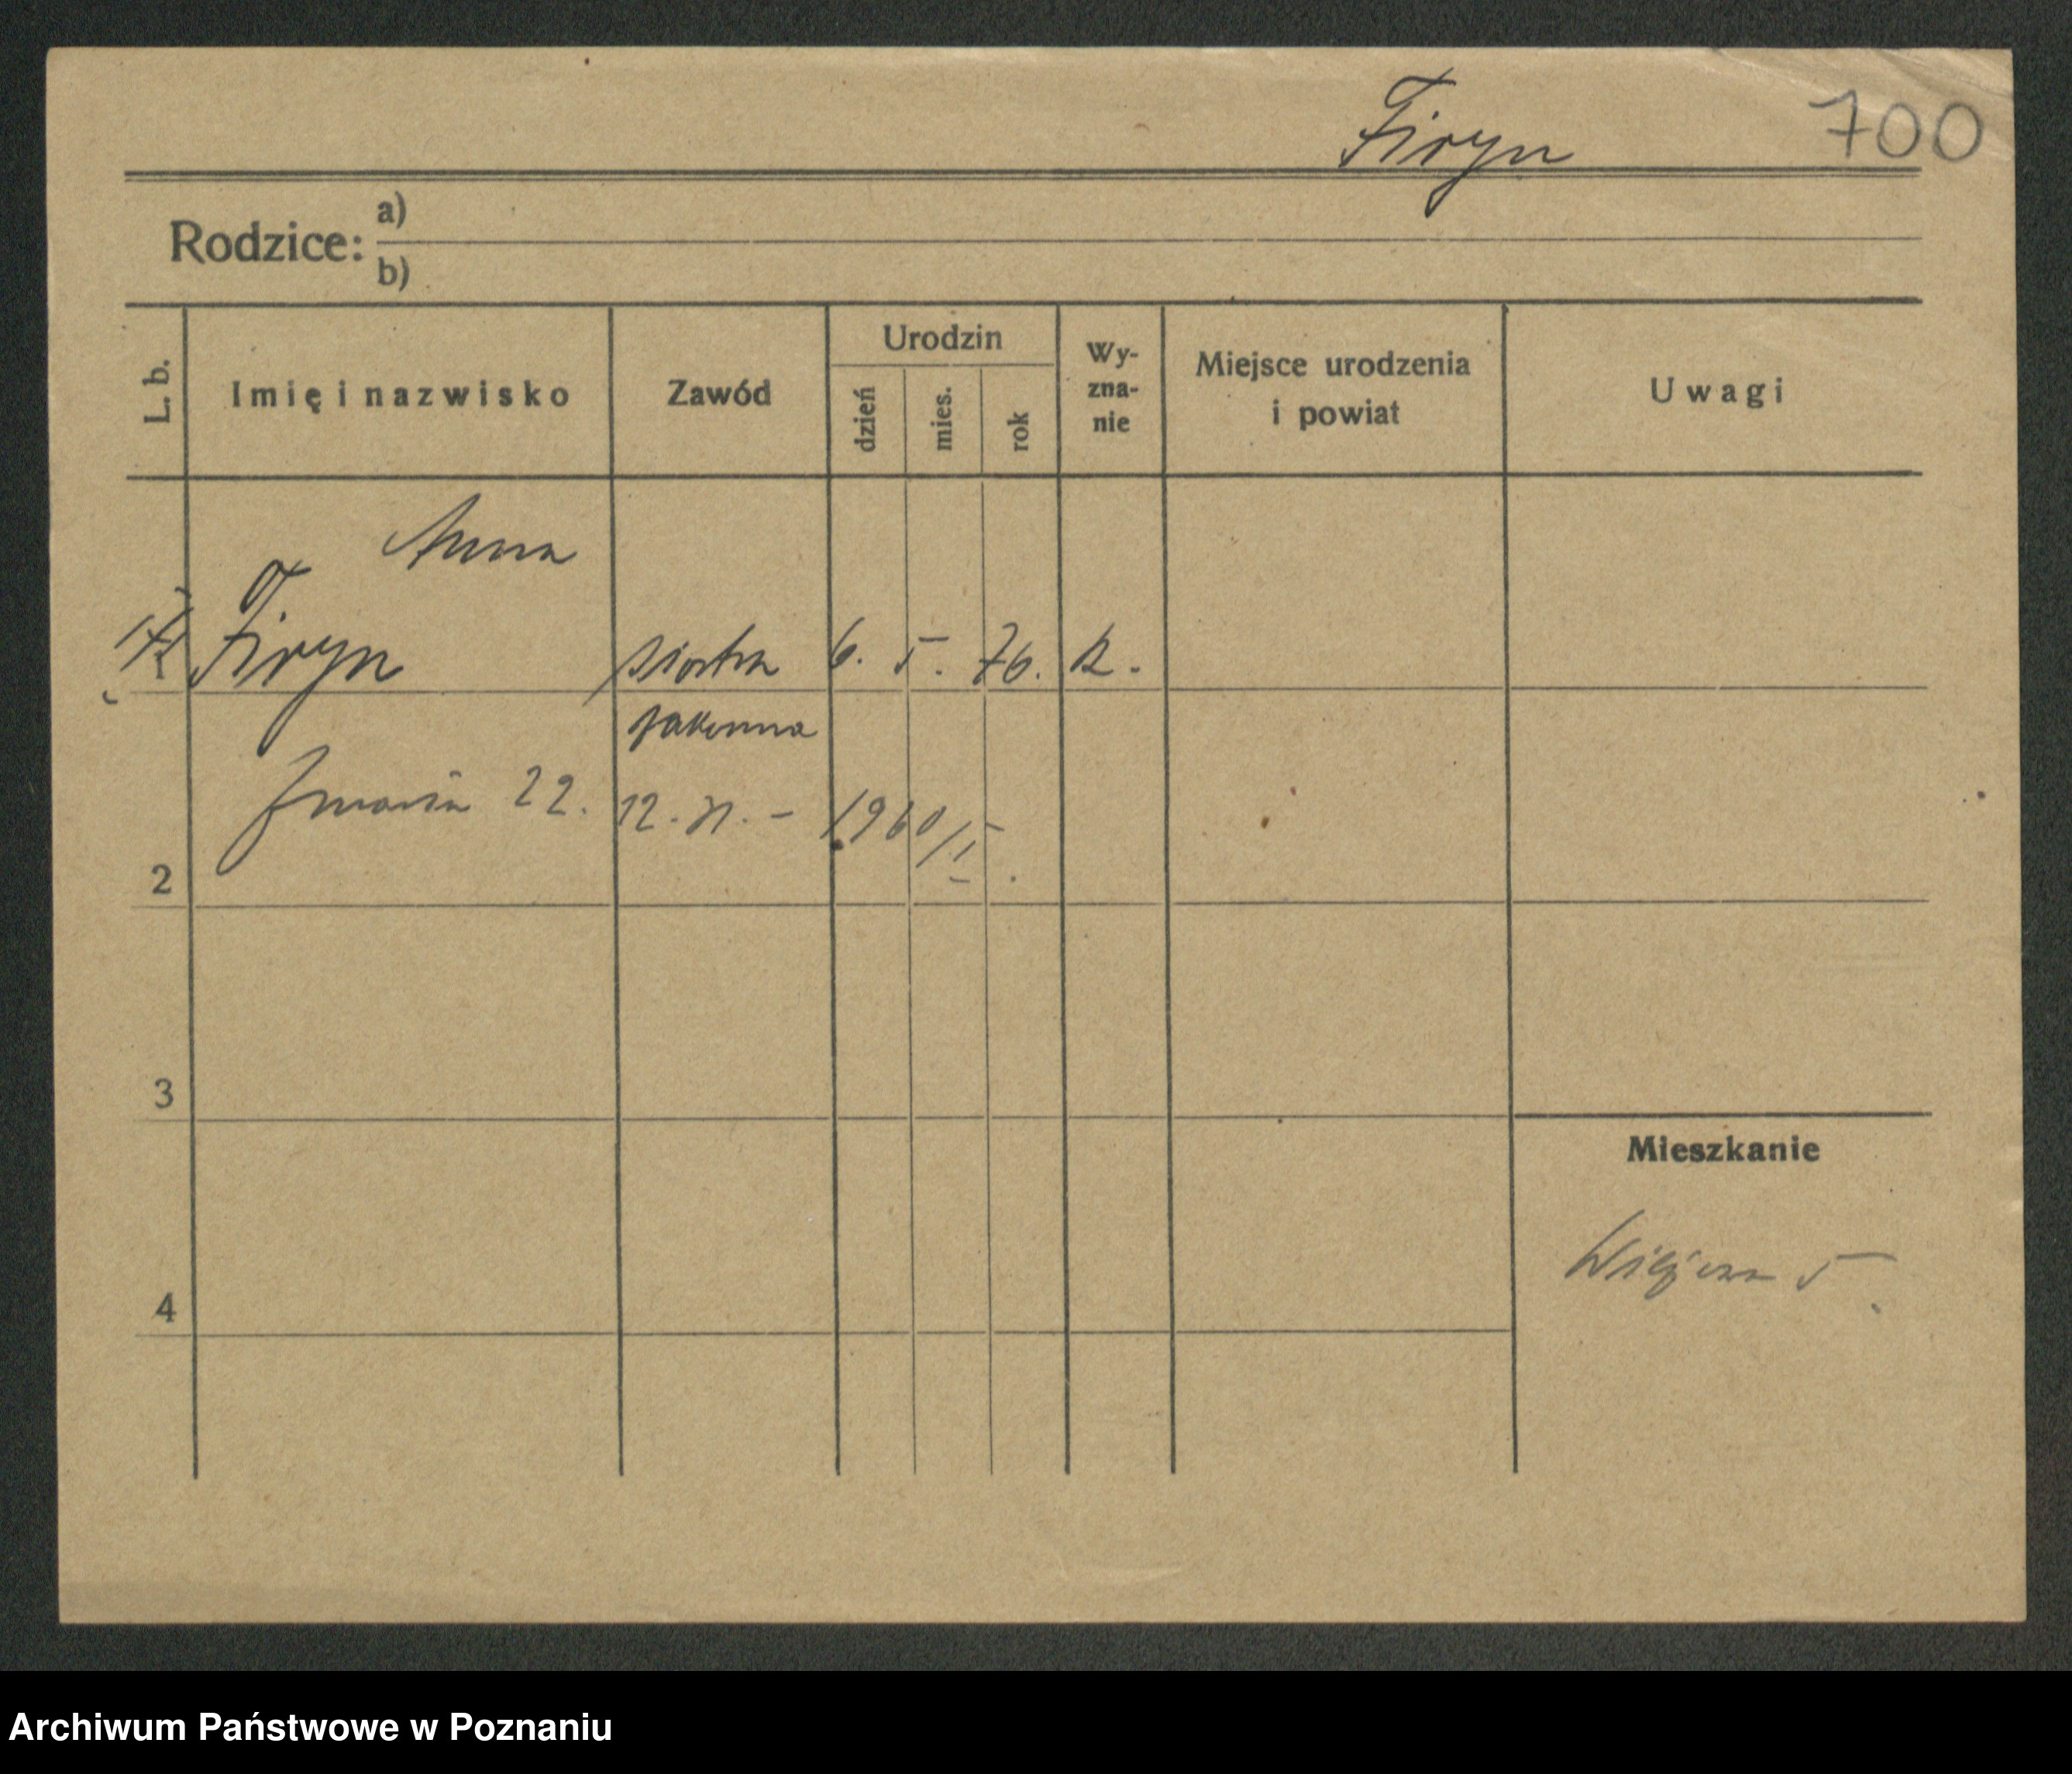 Firyn 700
Rodzice: a)
b)
L. b. Imię i nazwisko Zawód Urodzin dzień mies. rok Wy-zna-nie Miejsce urodzenia i powiat Uwagi
Anna
Firyn siostra 6. 5. 76. k.
zakonna
Zmarła 22. 12. 31. - 1960/II.
2
3
Mieszkanie
4
Archiwum Państwowe w Poznaniu